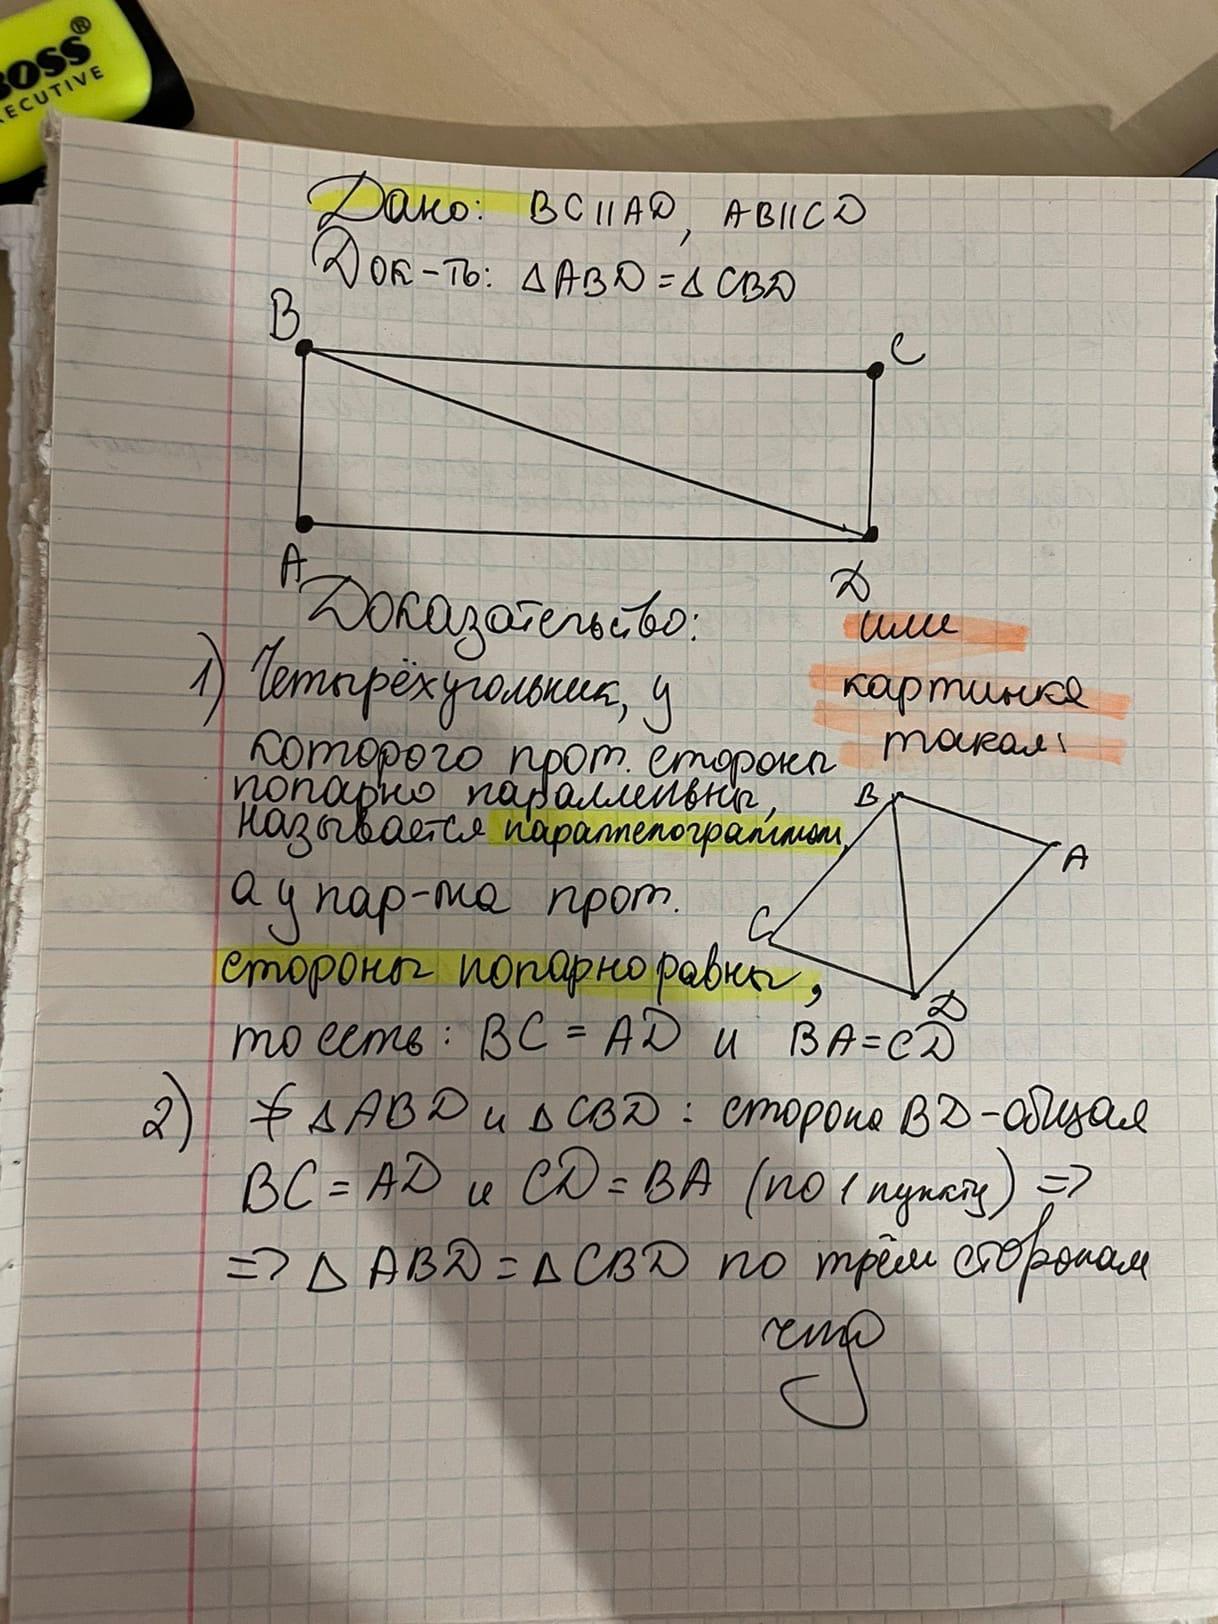 BOSS®
EXECUTIVE
Дано: BC||AD, AB||CD
Док-ть: △ABD=△CBD
B
C
A
D
Доказательство:
или
картинка
такая:
1) Четырёхугольник, у
которого прот. стороны
попарно параллельны,
называется параллелограммом,
а у пар-ма прот.
стороны попарно равны,
то есть: BC = AD и BA=CD
B
A
C
D
2) △ABD и △CBD: сторона BD-общая
BC=AD и CD=BA (по 1 пункту) =>
=> △ABD=△CBD по трём сторонам
чтд